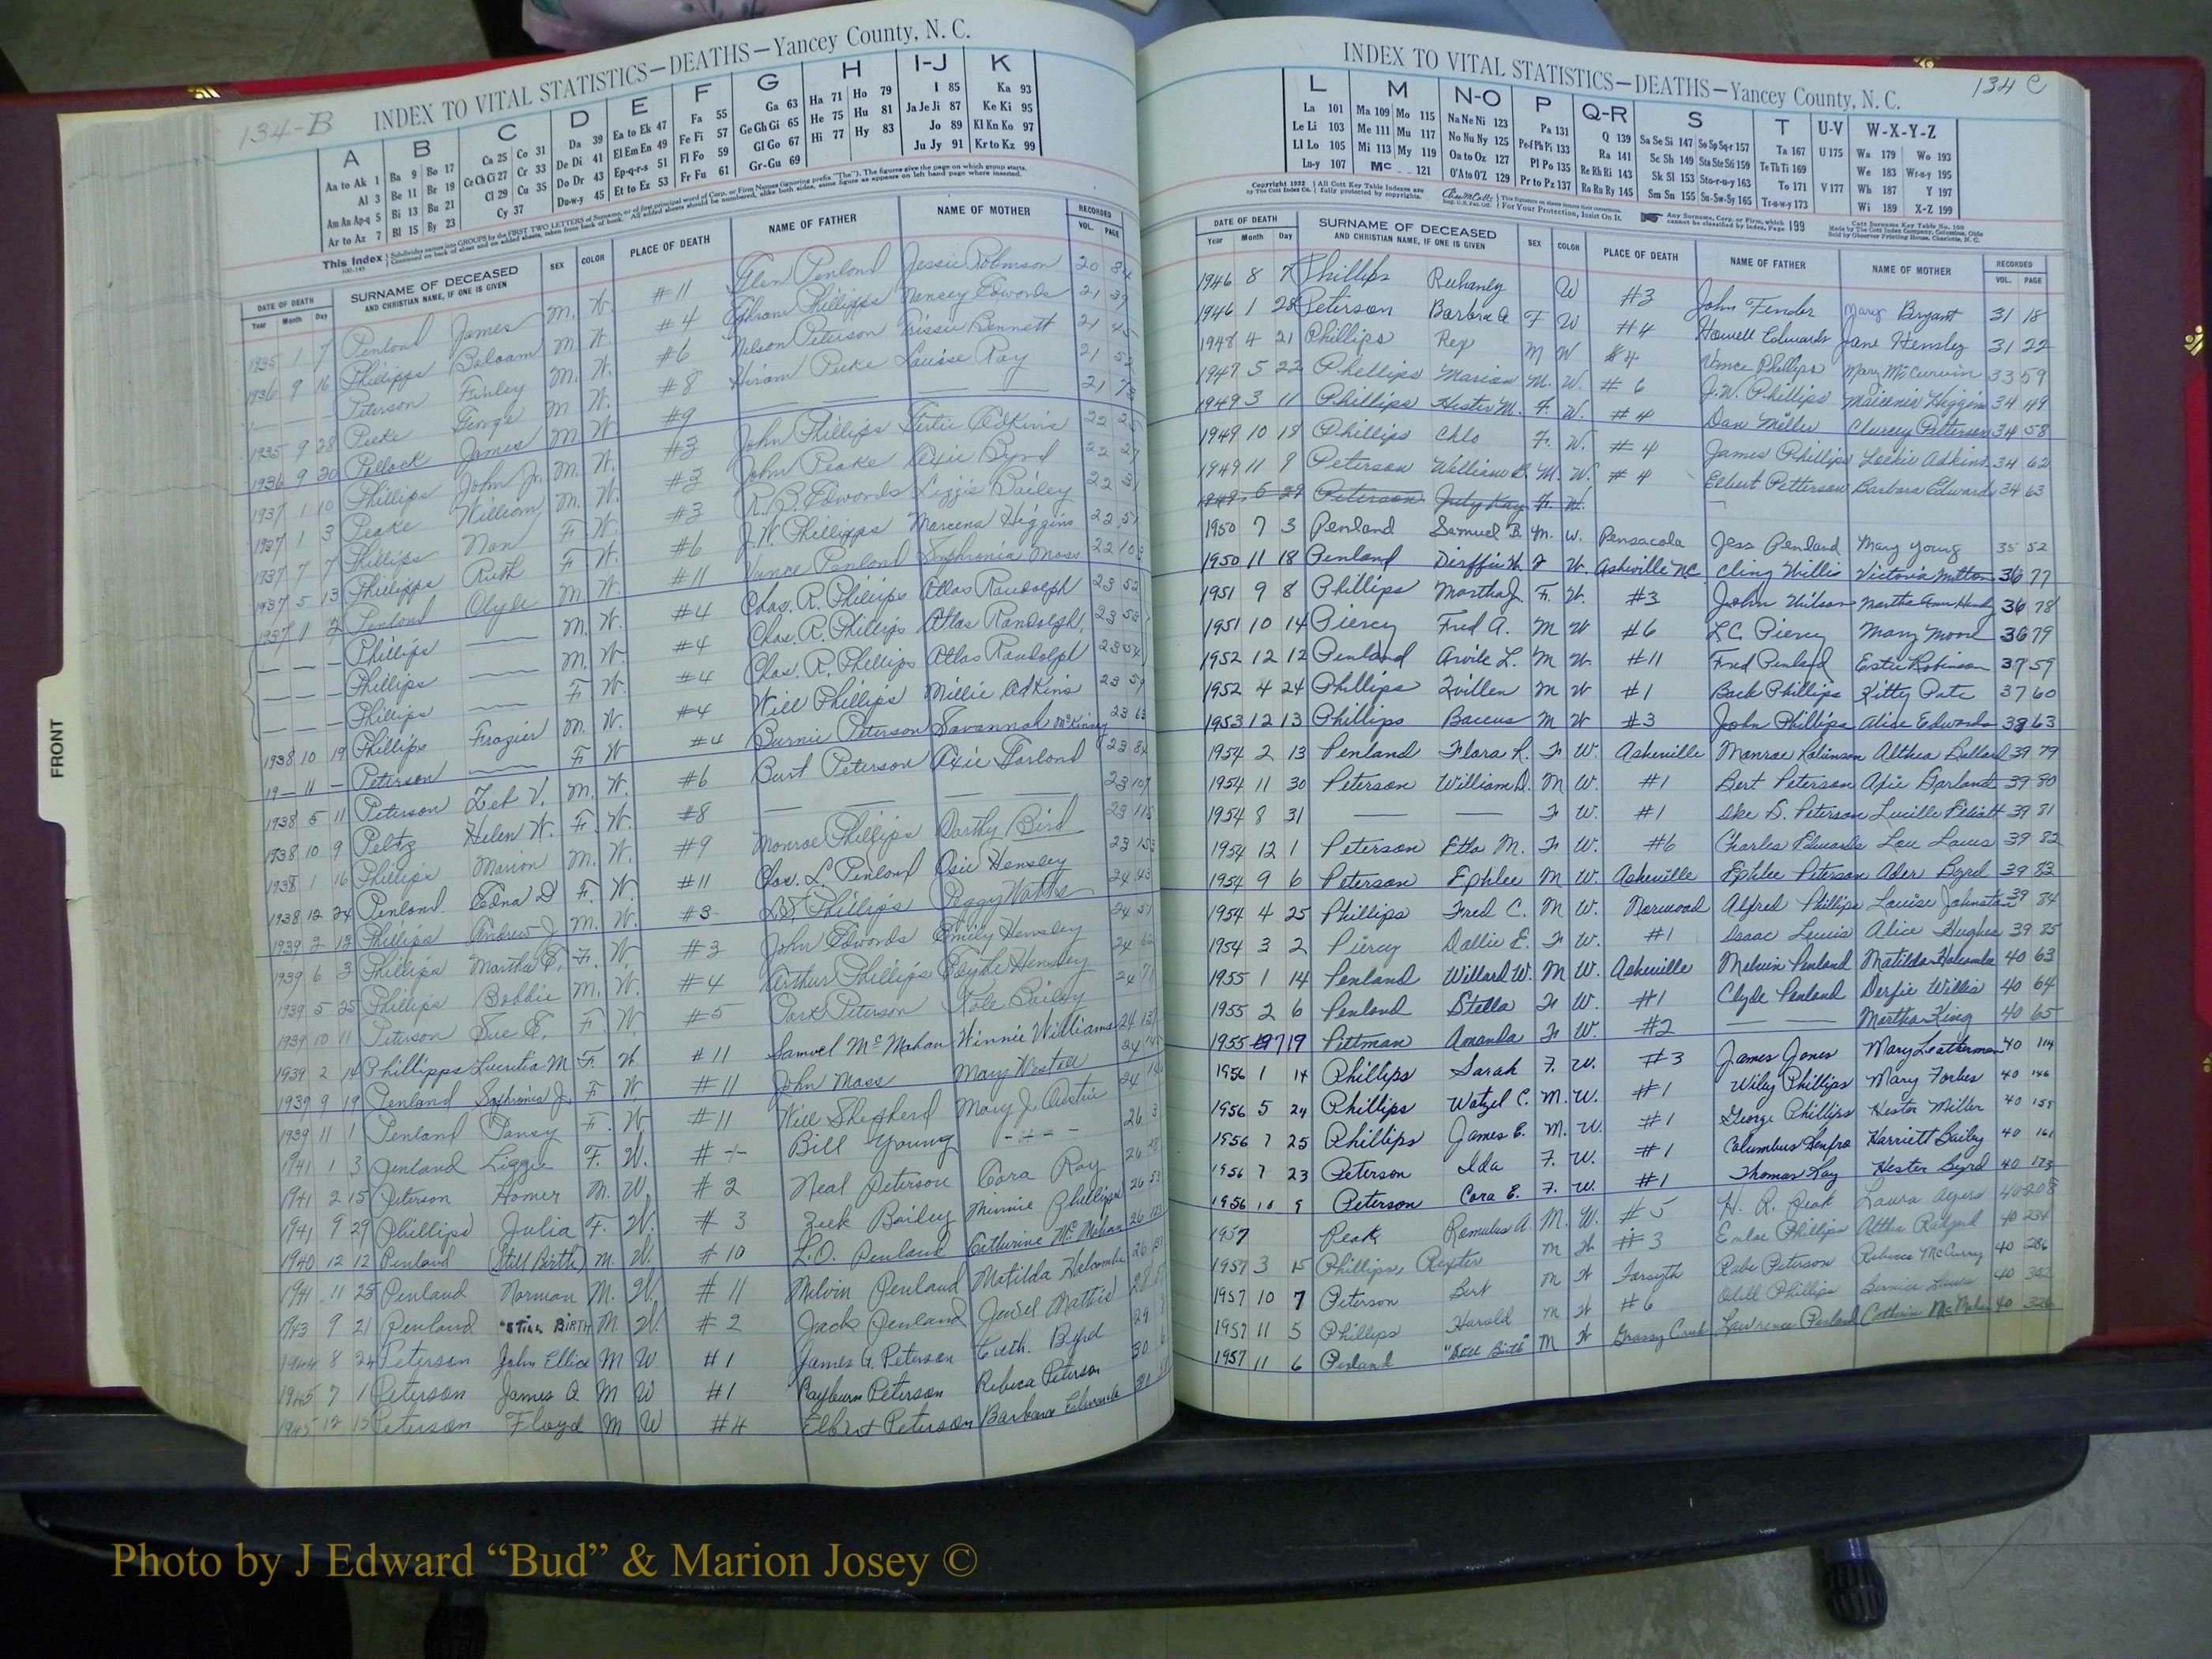 134-B
INDEX TO VITAL STATISTICS—DEATHS—Yancey County, N. C.
A B C D E F G H I-J K
Aa to Ak 1 Ba 9 Bo 17 Ca 25 Co 31 Da 39 Ea to Ek 47 Fa 55 Ga 63 Ha 71 Ho 79 I 85 Ka 93
Al 3 Be 11 Br 19 Ce Ch Ci 27 Cr 33 De Di 41 El Em En 49 Fe Fi 57 Ge Gh Gi 65 He 75 Hu 81 Ja Je Ji 87 Ke Ki 95
Am An Ap-q 5 Bi 13 Bu 21 Cl 29 Cu 35 Do Dr 43 Ep-q-r-s 51 Fl Fo 59 Gl Go 67 Hi 77 Hy 83 Jo 89 Kl Kn Ko 97
Ar to Az 7 Bl 15 By 23 Cy 37 Du-w-y 45 Et to Ez 53 Fr Fu 61 Gr-Gu 69 Ju Jy 91 Kr to Kz 99
This Index
DATE OF DEATH SURNAME OF DECEASED SEX COLOR PLACE OF DEATH NAME OF FATHER NAME OF MOTHER RECORDED
Year Month Day AND CHRISTIAN NAME, IF ONE IS GIVEN VOL. PAGE
1935 1 7 Penlond James M. W. #11 Glen Penlond Jessie Robinson 20 84
1936 9 16 Phillipps Balaam M W. #4 Ephram Phillipps Nancey Edwords 21 39
— — — Peterson Finley M. W. #6 Nelson Peterson Tissie Bennett 21 45
1935 9 28 Peeke George M W. #8 Hiram Peeke Louise Ray 21 52
1936 9 20 Pollock James M W #9 — — — 21 73
1937 1 10 Phillips John Jr. M. W. #3 John Phillips Tertie Adkins 22 25
1937 1 3 Peake William M. W. #3 John Peake Axie Byrd 22 27
1937 7 7 Phillips Nan F W. #3 R. B. Edwords Lizzie Bailey 22 31
1937 5 13 Phillipps Ruth F W. #6 J. W. Phillipps Marcena Higgins 22 51
1937 1 2 Penlond Clyde M W. #11 Vance Penlond Sophronia Moss 22 103
— — — Phillips — M. W. #4 Chas. R. Phillips Atlas Randolph 23 52
— — — Phillips — M. W. #4 Chas. R. Phillips Atlas Randolph 23 53
— — — Phillips — F W. #4 Chas. R. Phillips Atlas Randolph 23 54
1938 10 19 Phillips Frazier M. W. #4 Will Phillips Millie Adkins 23 57
19— 11 — Peterson — F W #4 Burnie Peterson Savannah McKinney 23 63
1938 5 11 Peterson Zeb V. M. W. #6 Burt Peterson Axie Garlond 23 84
1938 10 9 Peltz Helen W. F. W. #8 — — — 23 107
1938 1 16 Phillips Marion M. W. #9 Monroe Phillips Dorthy Bird 23 115
1938 12 24 Penlond Edna D F. W. #11 Chas. L. Penlond Osie Hensley 23 153
1939 2 12 Phillips Andrew J M. W. #3 Phillips Peggy Watts 24 43
1939 6 3 Phillips Martha E. F. W. #3 John Edwords Emily Hensley 24 51
1939 5 25 Phillips Bobbie M. W. #4 Arthur Phillips Hensley 24 62
1939 10 11 Peterson Sue E. F. W. #5 Park Peterson Bailey 24 71
1939 2 14 Phillipps Lucretia M F. W #11 Samuel McMahan Winnie Williams 24 131
1939 9 19 Penland Sophronia J. F W #11 John Moss Mary Westall 24
1939 11 1 Penland Pansy F. W #11 Will Shepherd Mary J. Austin 24
1941 1 3 Penland Lizzie F. W. # Bill Young - - - - 26 3
1941 2 15 Peterson Homer M. W. #2 Neal Peterson Cora Ray 26
1941 9 29 Phillips Julia F. W. #3 Zeek Bailey Minnie Phillips 26 53
1940 12 12 Penland (Still Birth) M. W. #10 L.O. Penland Catherine McMahan 26 123
1941 11 25 Penland Norman M. W. #11 Melvin Penland Matilda Holcombe 26
1943 9 21 Penland "STILL BIRTH M. W. #2 Jack Penland Jewel Mathis 28
1944 8 24 Peterson John Ellice M W #1 James G. Peterson Ruth. Byrd 29
1945 7 1 Peterson James A. M W #1 Rayburn Peterson Rebeca Peterson 30
1945 12 15 Peterson Floyd M W #4 Elbert Peterson Barbara Edwards 31
FRONT
134 C
INDEX TO VITAL STATISTICS—DEATHS—Yancey County, N. C.
L M N-O P Q-R S T U-V W-X-Y-Z
La 101 Ma 109 Mo 115 Na Ne Ni 123 Pa 131 Q 139 Sa Se Si 147 So Sp Sq-r 157 Ta 167 U 175 Wa 179 Wo 193
Le Li 103 Me 111 Mu 117 No Nu Ny 125 Pe-f Ph Pi 133 Ra 141 Sc Sh 149 Sta Ste Sti 159 Te Th Ti 169 We 183 Wr-u-y 195
Ll Lo 105 Mi 113 My 119 Oa to Oz 127 Pl Po 135 Re Rh Ri 143 Sk Sl 153 Sto-r-u-y 163 To 171 V 177 Wh 187 Y 197
Lu-y 107 Mc 121 O'A to O'Z 129 Pr to Pz 137 Ro Ru Ry 145 Sm Sn 155 Su-Sw-Sy 165 Tr-u-w-y 173 Wi 189 X-Z 199
Copyright 1932 by The Cott Index Co. All Cott Key Table Indexes are fully protected by copyrights. For Your Protection, Insist On It. Any Surname, Corp. or Firm, which cannot be classified by Index, Page 199
DATE OF DEATH SURNAME OF DECEASED SEX COLOR PLACE OF DEATH NAME OF FATHER NAME OF MOTHER RECORDED
Year Month Day AND CHRISTIAN NAME, IF ONE IS GIVEN VOL. PAGE
1946 8 7 Phillips Ruhanly W #3 John Fender Mary Bryant 31 18
1946 1 28 Peterson Barbra A F W #4 Howell Edwards Jane Hensley 31 22
1948 4 21 Phillips Rex M W #4 Vance Phillips Mary McCurvin 33 59
1947 5 22 Phillips Marian M. W. #6 J.W. Phillips Higgins 34 49
1949 3 11 Phillips Hester M. F. W. #4 Dan Miller Peterson 34 58
1949 10 18 Phillips Chlo F. W. #4 James Phillips Lockie Adkins 34 62
1949 11 9 Peterson William E. M. W. #4 Elbert Petterson Barbara Edwards 34 63
1949 6 29 Peterson July Kay F. W.
1950 7 3 Penland Samuel B. M. W. Pensacola Jess Penland Mary Young 35 52
1950 11 18 Penland Dirffie W. F W. Asheville N.C. Cling Willis Victoria Mitton 36 77
1951 9 8 Phillips Martha J. F. W. #3 John Wilson Martha Ann 36 78
1951 10 14 Piercy Fred A. M W #6 L.C. Piercy Mary Moore 36 79
1952 12 12 Penland Arvile L. M W. #11 Fred Penland Ester Robinson 37 59
1952 4 24 Phillips Zvillen M W #1 Back Phillips Kitty Pate 37 60
1953 12 13 Phillips Baccus M W #3 John Phillips Alice Edwards 38 63
1954 2 13 Penland Flora R. F W. Asheville Monroe Robinson Althea Ballard 39 79
1954 11 30 Peterson William D. M W. #1 Bert Peterson Axie Garland 39 80
1954 8 31 — — F W. #1 Ike D. Peterson Lucille Elliott 39 81
1954 12 1 Peterson Etta M. F W. #6 Charles Edwards Lou Laws 39 82
1954 9 6 Peterson Ephlee M W. Asheville Ephlee Peterson Ader Byrd 39 83
1954 4 25 Phillips Fred C. M W. Norwood Alfred Phillips Louise Johnston 39 84
1954 3 2 Piercy Dallie E. F W. #1 Isaac Lewis Alice Hughes 39 85
1955 1 14 Penland Willard W. M W. Asheville Melvin Penland Matilda Holcombe 40 63
1955 2 6 Penland Stella F W. #1 Clyde Penland Derfie Willis 40 64
1955 7 19 Pittman Amanda F W. #2 — — Martha King 40 65
1956 1 14 Phillips Sarah F. W. #3 James Jones Mary Leatherman 40 114
1956 5 24 Phillips Watzel C. M. W. #1 Wiley Phillips Mary Forbes 40 146
1956 7 25 Phillips James E. M. W. #1 George Phillips Hester Miller 40 159
1956 7 23 Peterson Ida F. W. #1 Columbus Renfro Harriett Bailey 40 161
1956 10 9 Peterson Cora E. F. W. #1 Thomas Ray Hester Byrd 40 173
1957 Peak Romulus A. M. W. #5 H. R. Peak Laura Ayers 40 208
1957 3 15 Phillips, Rexter M W #3 Phillips 40 234
1957 10 7 Peterson Bert M W Forsyth Rabe Peterson Rebecca McCurry 40 286
1957 11 5 Phillips Harold M W #6 Odell Phillips Bernice Laws 40
1957 11 6 Penland "Still Birth" M W Grassy Creek Lawrence Penland Catherine McMahan 40 326
Photo by J Edward “Bud” & Marion Josey ©